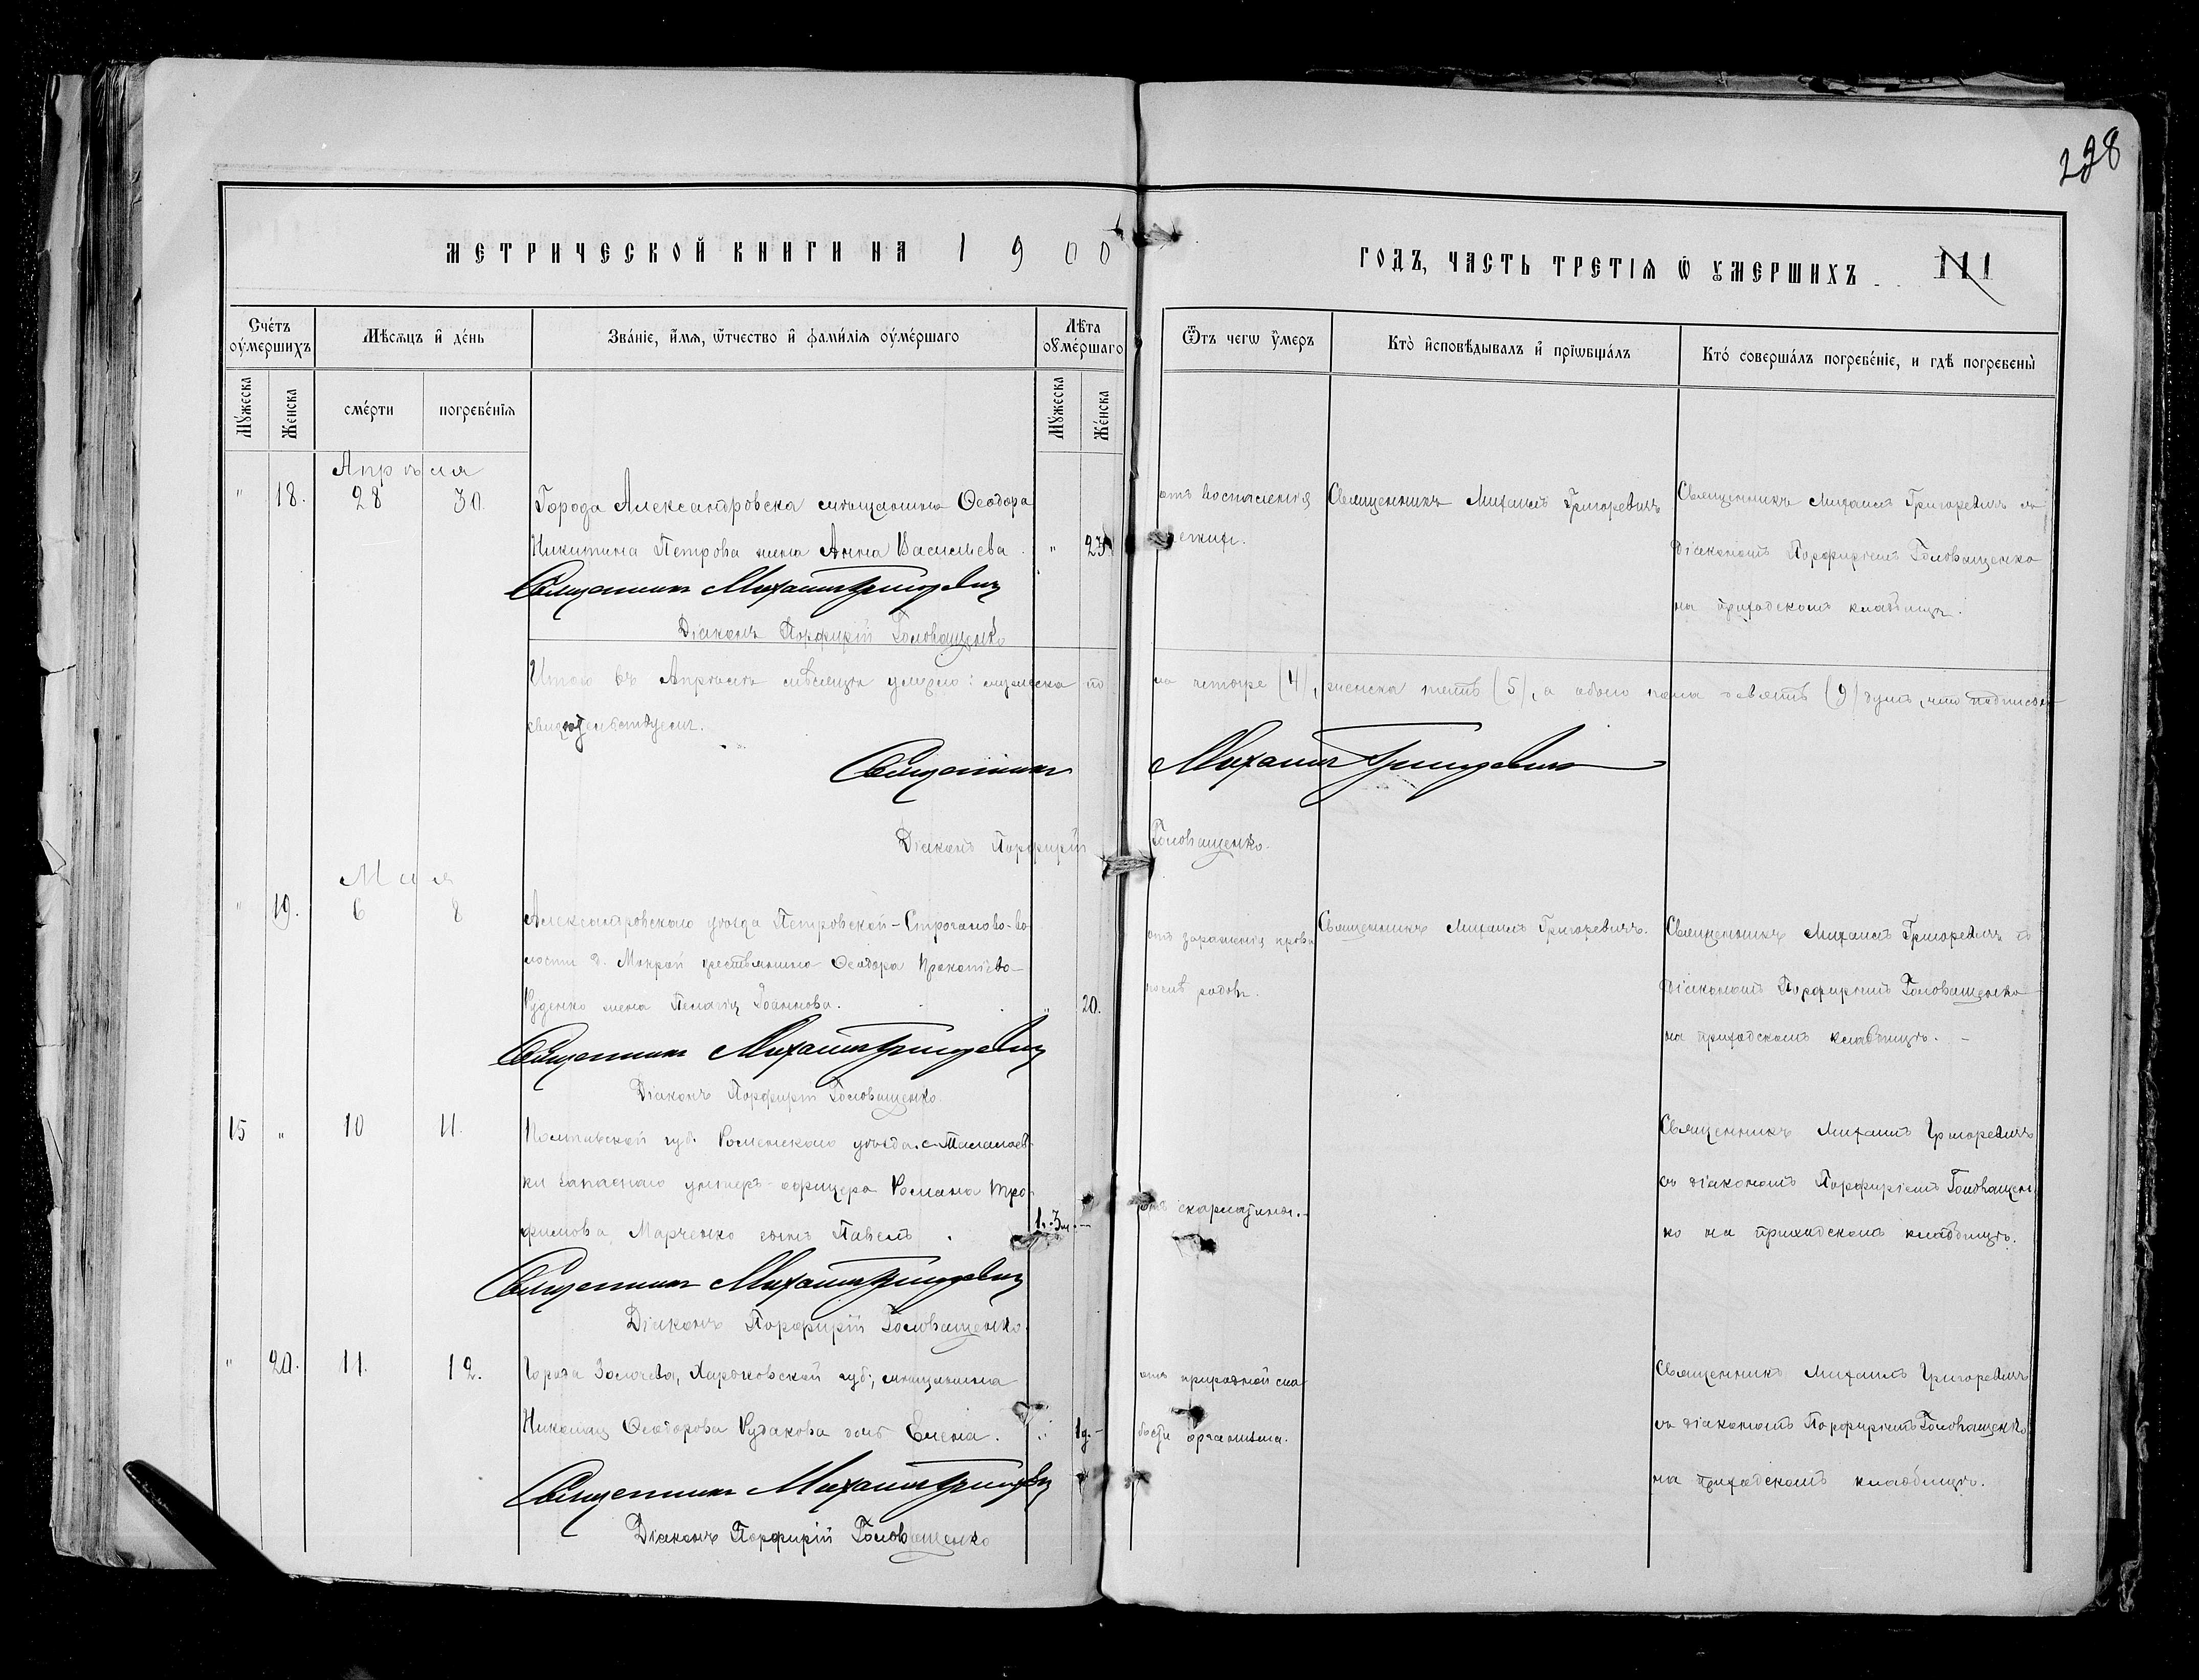 228
МЕТРИЧЕСКОЙ КНИГИ НА 1900
ГОДЪ, ЧАСТЬ ТРЕТІѦ Ѿ ѸМЕРШИХЪ 111
Сче́тъ ѹ́мершихъ
Мѣсѧцъ и҆ де́нь
Зва́нїе, и҆́мѧ, ѻ҆́тчество и҆ фами́лїѧ ѹ҆ме́ршаго
Лѣ́та ѹ҆ме́ршаго
Ѿъ чегѡ ѹ҆́меръ
Кто̀ и҆сповѣ́дывалъ и҆ прїѡбща́лъ
Кто́ соверша́лъ погребе́нїе, и гдѣ̀ погребены̀
Мꙋ́жеска
Же́нска
сме́рти
погребе́нїѧ
Мꙋ́жеска
Же́нска
Апрѣля
" 18. 28 30.
Города Александровска мѣщанина Ѳеодора
Никитина Петрова жена Анна Васильева. " 23
Священникъ Михаилъ Григоревичъ
Діаконъ Порфирій Головащенко
отъ воспаленія
легкихъ.
Священникъ Михаилъ Григоревичъ
Священникъ Михаилъ Григоревичъ съ
діакономъ Порфиріемъ Головащенко
на приходскомъ кладбищѣ.
Итого въ Апрѣлѣ мѣсяцѣ умерло: мужеска по
ла четыре (4), женска пять (5), а обоего пола девять (9) душъ, что подписомъ
свидѣтельствуемъ.
Священникъ Михаилъ Григоревичъ
Діаконъ Порфирій Головащенко.
Мая
" 19. 6 8
Александровскаго уѣзда Петровской-Строганово-во
лости д. Мокрой крестьянина Ѳеодора Прокопіева-
Руденко жена Пелагія Іоаннова. " 20.
Священникъ Михаилъ Григоревичъ
Діаконъ Порфирій Головащенко.
отъ зараженія крови
послѣ родовъ.
Священникъ Михаилъ Григоревичъ.
Священникъ Михаилъ Григоревичъ съ
діакономъ Порфиріемъ Головащенко
на приходскомъ кладбищѣ. -
15 " 10 11.
Полтавской губ. Роменскаго уѣзда с. Талалаев-
ки запаснаго унтеръ-офицера Романа Тро-
фимова Марченко сынъ Павелъ. 1г. 3м. -
Священникъ Михаилъ Григоревичъ
Діаконъ Порфирій Головащенко.
отъ скарлатины.-
Священникъ Михаилъ Григоревичъ
съ діакономъ Порфиріемъ Головащен
ко на приходскомъ кладбищѣ.
" 20. 11. 12.
Города Золочева, Харьковской губ., мѣщанина
Николая Ѳеодорова Рудакова дочь Елена. " 1д.-
Священникъ Михаилъ Григоревичъ
Діаконъ Порфирій Головащенко
отъ природной сла
бости организма.
Священникъ Михаилъ Григоревичъ
съ діакономъ Порфиріемъ Головащенко
на приходскомъ кладбищѣ.